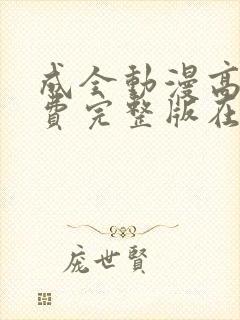 成全動漫高
費完整版在
龐世賢